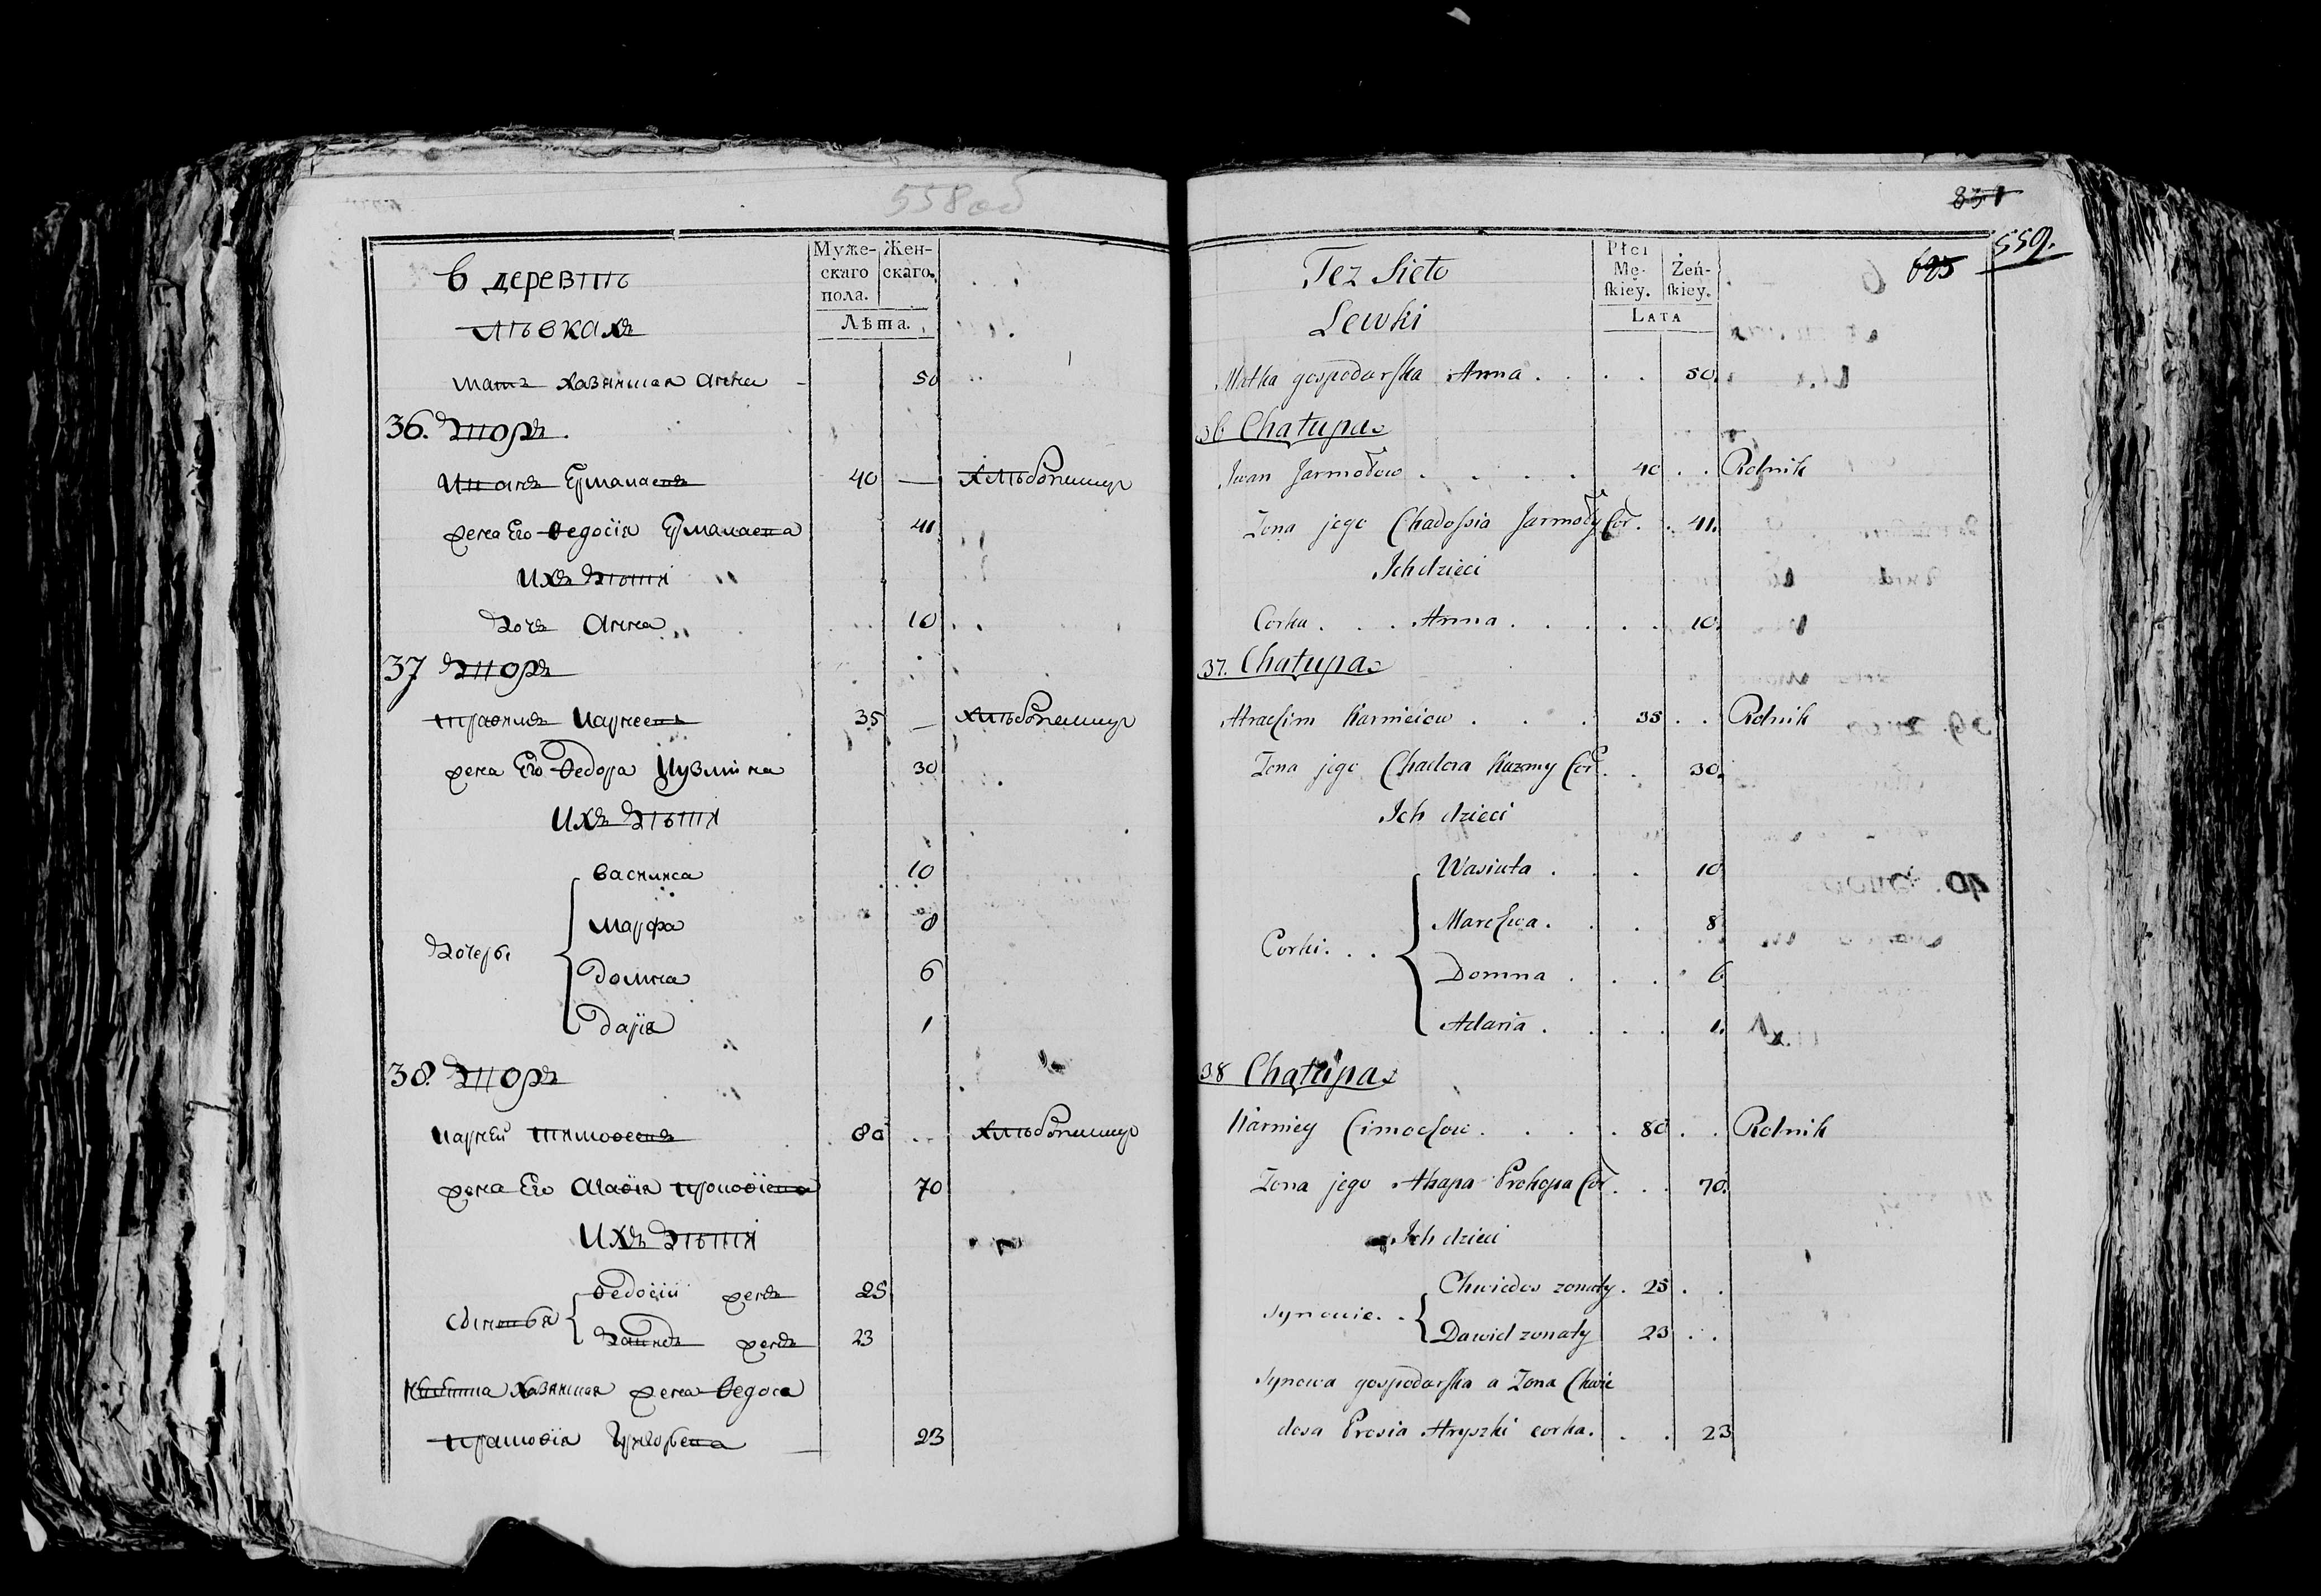 558 об
Муже-
скаго
пола.
Жен-
скаго.
Лѣта.
в деревнѣ
Лѣвкахъ
мать хазяиская Анна - 50
36. Дворъ
Иванъ Ермалаевъ 40 — хлѣбопашецъ
жена Его Ѳедосія Ермалаева 41
Ихъ дѣти
Дочь Анна 10
37 Дворъ
35 — хлѣбопашецъ
жена Его Ѳедора Кузмина 30
Ихъ дѣти
Дочери
Василиса 10
Марфа 8
Домна 6
Дарія 1
38. Дворъ
Карней Тимофеевъ 80 хлѣбопашецъ
жена Его Агафія Прокофіева 70
Ихъ дѣти
Сыновья
Ѳедосій женъ 25
Давидъ женъ 23
Невѣстка хазяиская жена Ѳедоса
Григорьева — 23
831
685
559.
Płci
Mę-
ſkiey.
Żeń-
ſkiey.
LATA
Tez Sieło
Lewki
Matka gospodarſka Anna . . . 50.
36 Chałupa
Iwan Jarmołow . . . . 40 . . Rolnik
Zona jego Chadoſsia Jarmoły Cor. . 41.
Ich dzieci
Corka . . . Anna . . . . . 10.
37. Chałupa
Harnieiow . . . 35 . . Rolnik
Zona jego Chadora Kuzmy Cor. . 30.
Ich dzieci
Corki . . .
Wasiuta . . . 10
Marchwa . . . 8
Domna . . . . 6
Adaria . . . . 1.
38 Chałupa
Harniey Cimochow . . . . 80 . . Rolnik
Zona jego Ahapa Prokopa Cor. . . 70.
Ich dzieci
Synowie . .
Chwiedos zonaty . 25 . .
Dawid zonaty 23 . .
Synowa gospodarſka a Zona Chwie
dosa Prosia Hryszki corka. . . 23